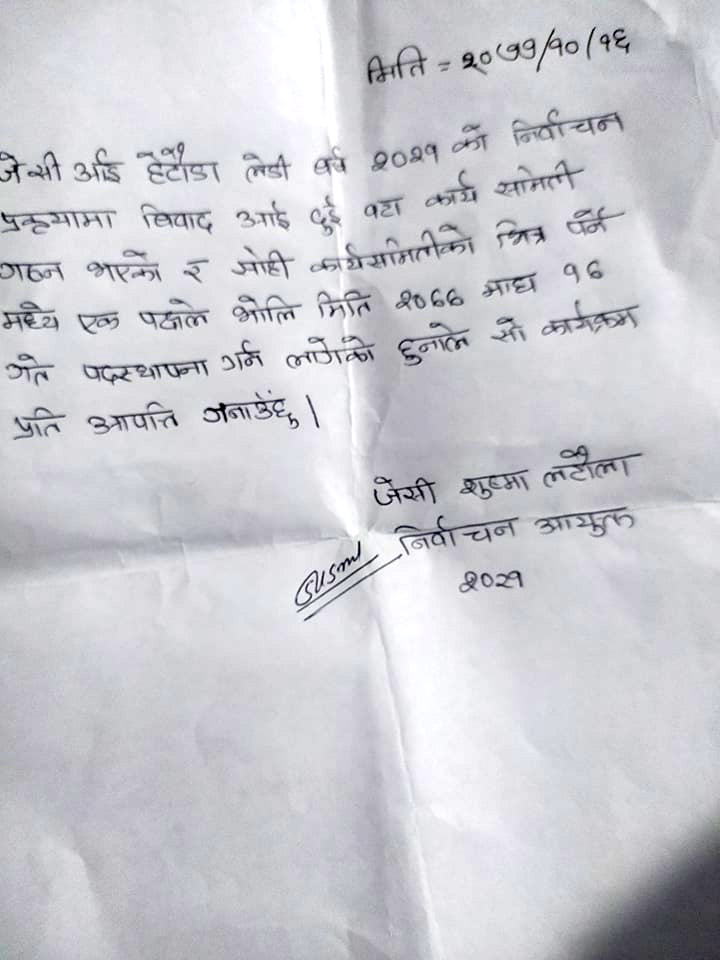 मिति = २०७७/१०/१६
जेसी आई हेटौंडा लेडी वर्ष २०२१ को निर्वाचन
प्रकृयामा विवाद आई दुई वटा कार्य समिती
गठन भएको र सोही कार्यसमितीको भित्र पर्ने
मध्ये एक पक्षले भोलि मिति २०७७ माघ १६
गते पदस्थापना गर्न लागेको हुनाले सो कार्यक्रम
प्रति आपत्ति जनाउँछु।
जेसी शुष्मा लटौला
निर्वाचन आयुक्त
२०२१